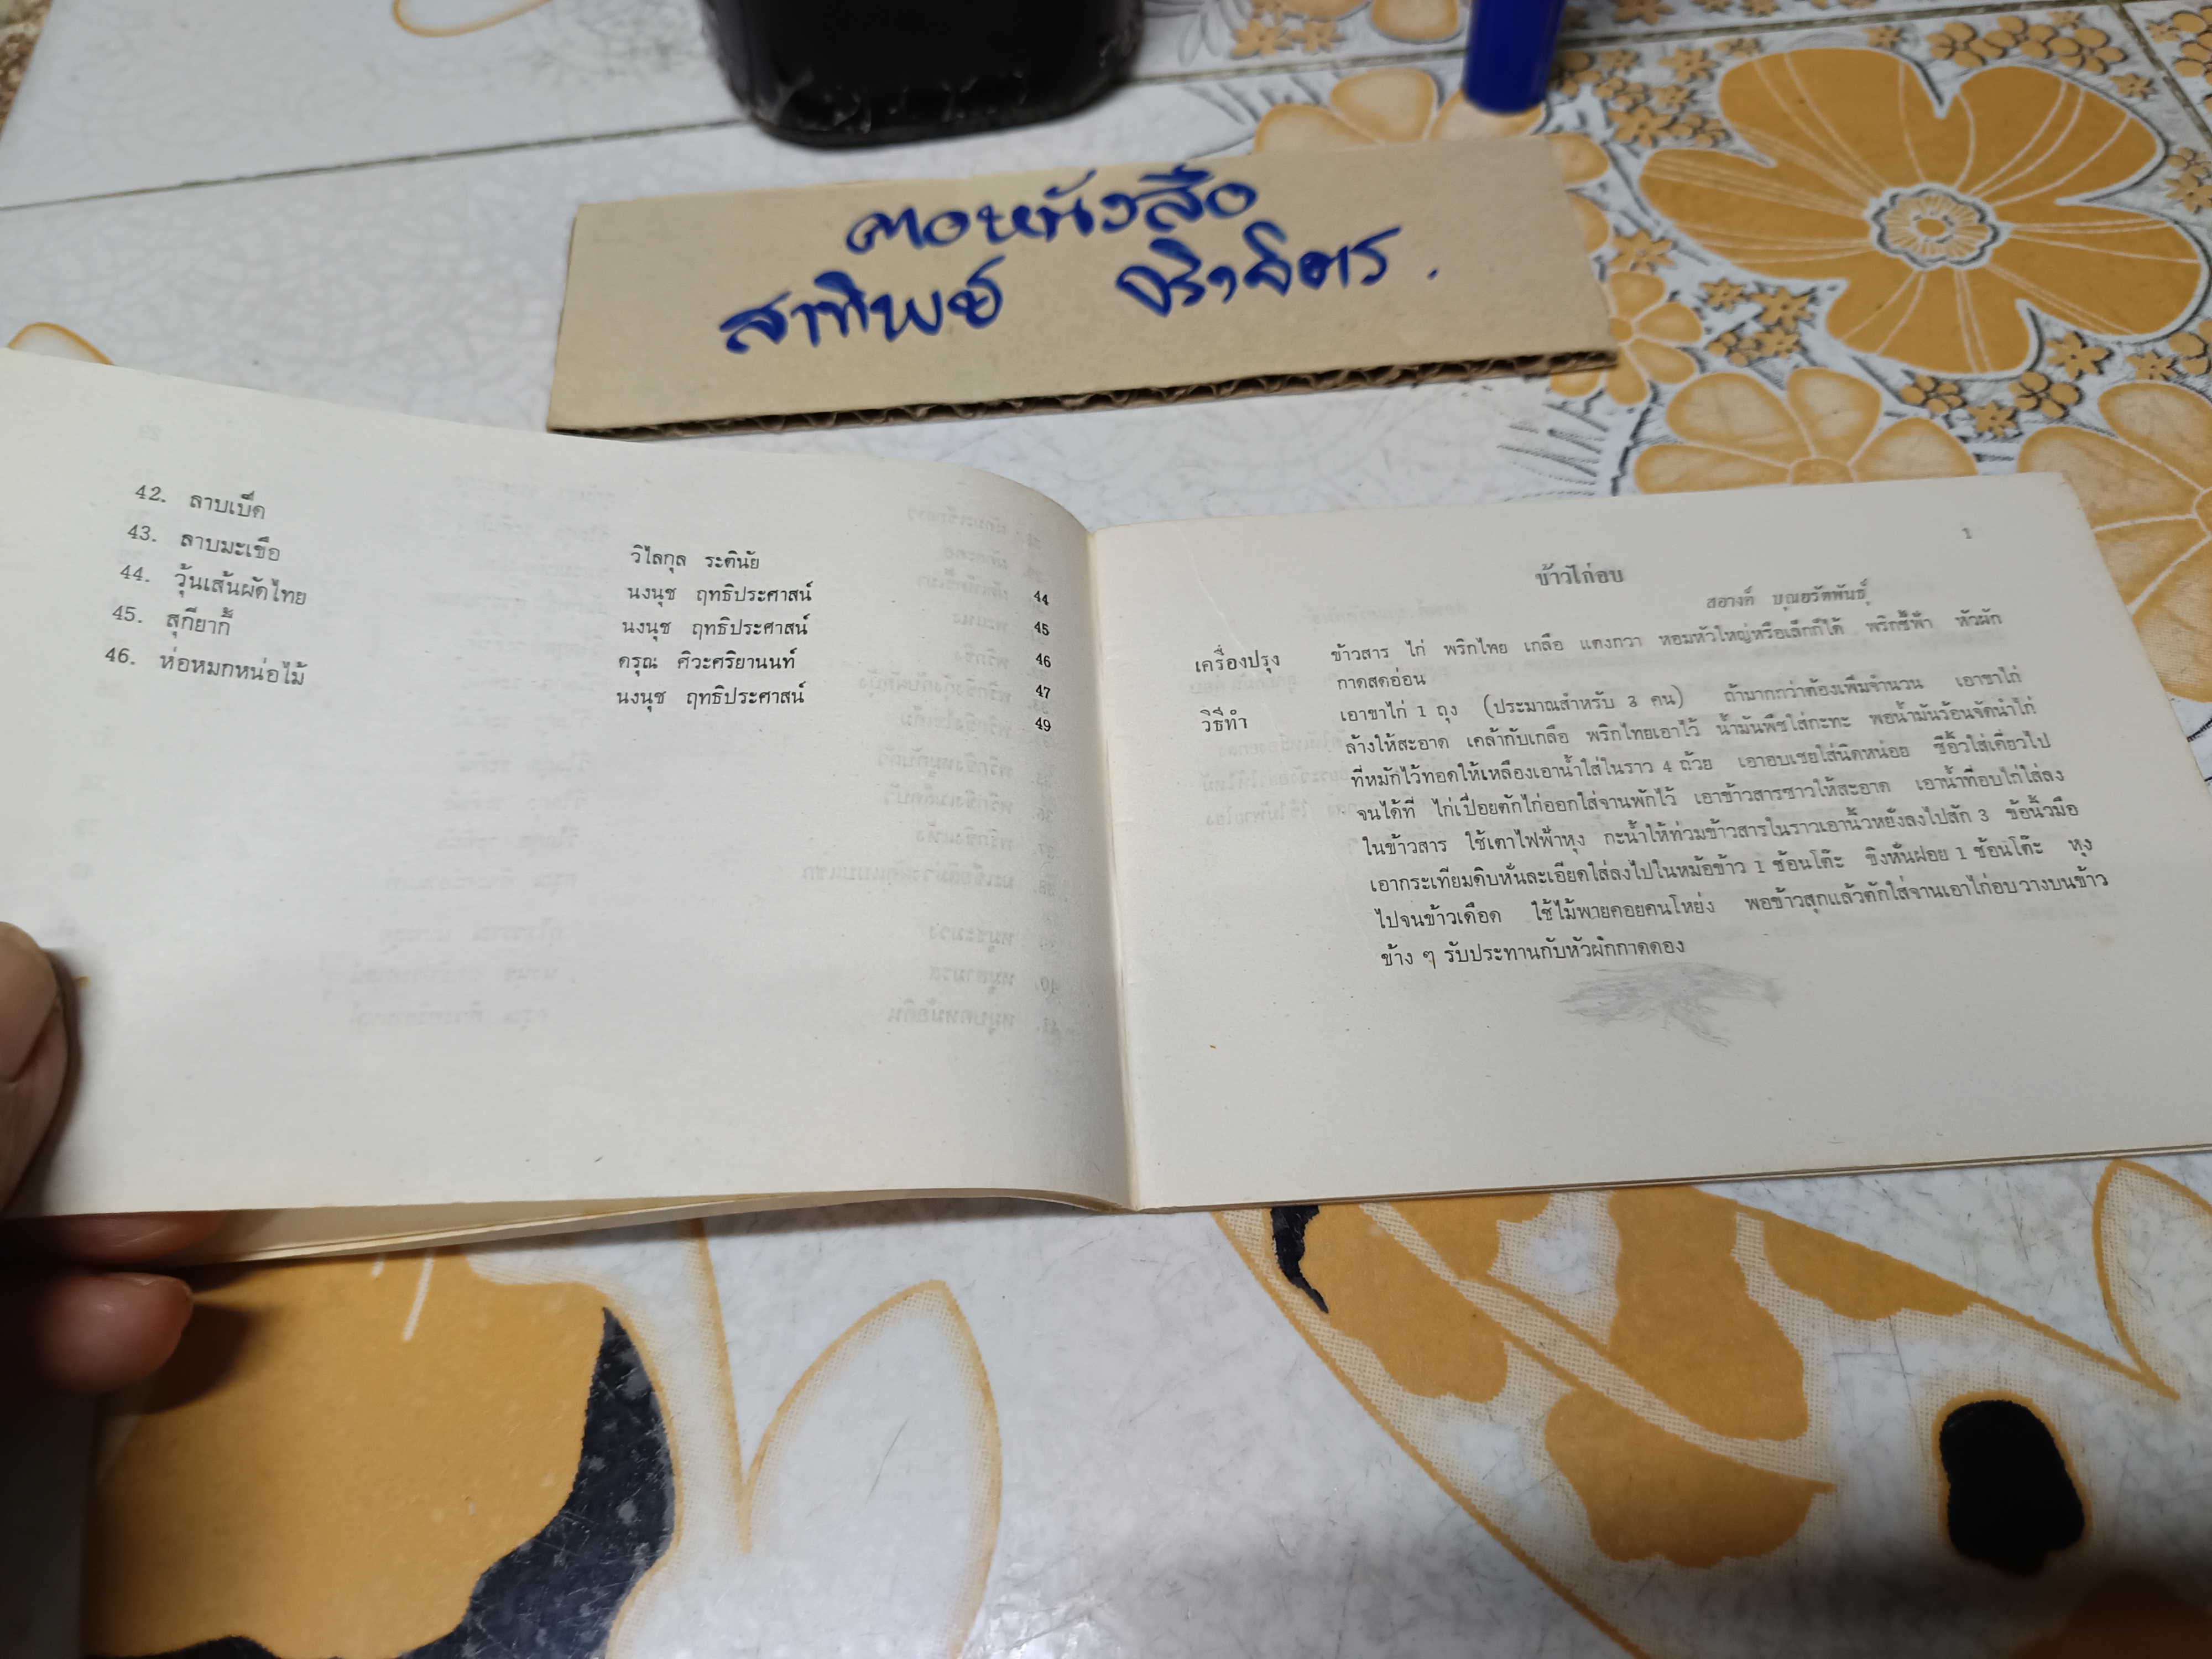 คอหนังสือ
สาทิพย์
42. ลาบเป็ด
43. ลาบมะเขือ
44. วุ้นเส้นผัดไทย
45. สุกียากี้
46. ห่อหมกหน่อไม้
วิไลกุล ระตินัย 44
นงนุช ฤทธิประศาสน์ 45
นงนุช ฤทธิประศาสน์ 46
ดรุณ ศิวะศริยานนท์ 47
นงนุช ฤทธิประศาสน์ 49
1
ข้าวไก่อบ
สอางค์ บุณยรัตพันธุ์
เครื่องปรุง ข้าวสาร ไก่ พริกไทย เกลือ แตงกวา หอมหัวใหญ่หรือเล็กก็ได้ พริกชี้ฟ้า หัวผัก
กาดสดอ่อน
วิธีทำ เอาขาไก่ 1 ถุง (ประมาณสำหรับ 3 คน) ถ้ามากกว่าต้องเพิ่มจำนวน เอาขาไก่
ล้างให้สะอาด เคล้ากับเกลือ พริกไทยเอาไว้ น้ำมันพืชใส่กะทะ พอน้ำมันร้อนจัดนำไก่
ที่หมักไว้ทอดให้เหลืองเอาน้ำใส่ในราว 4 ถ้วย เอาอบเชยใส่นิดหน่อย ซีอิ๊วใส่เคี่ยวไป
จนได้ที่ ไก่เปื่อยตักไก่ออกใส่จานพักไว้ เอาข้าวสารซาวให้สะอาด เอาน้ำที่อบไก่ใส่ลง
ในข้าวสาร ใช้เตาไฟฟ้าหุง กะน้ำให้ท่วมข้าวสารในราวเอานิ้วหยั่งลงไปสัก 3 ข้อนิ้วมือ
เอากระเทียมดิบหั่นละเอียดใส่ลงไปในหม้อข้าว 1 ช้อนโต๊ะ ขิงหั่นฝอย 1 ช้อนโต๊ะ หุง
ไปจนข้าวเดือด ใช้ไม้พายคอยคนโหย่ง พอข้าวสุกแล้วตักใส่จานเอาไก่อบวางบนข้าว
ข้าง ๆ รับประทานกับหัวผักกาดดอง